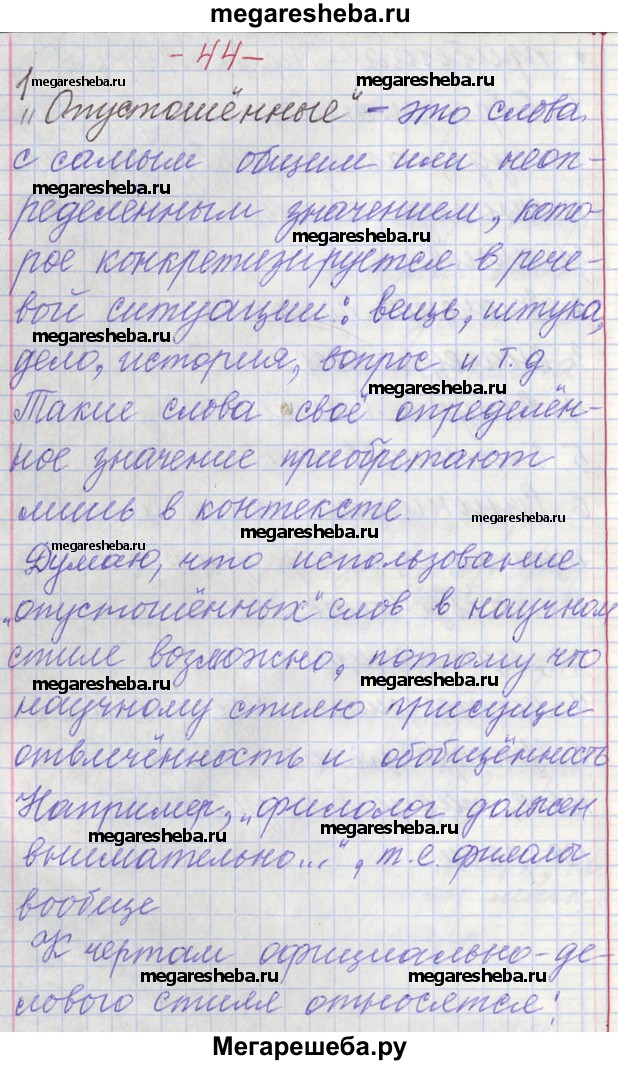 megaresheba.ru
megaresheba.ru
- 44 -
1 megaresheba.ru megaresheba.ru
„Опустошённые“ - это слова
с самым общим или неоп-
megaresheba.ru
ределенным значением, кото-
megaresheba.ru
рое конкретизируется в рече-
вой ситуации: вещь, штука,
megaresheba.ru
дело, история, вопрос и т.д.
megaresheba.ru
Такие слова своё определён-
ное значение приобретают
лишь в контексте.
megaresheba.ru megaresheba.ru
megaresheba.ru
Думаю, что использование
„опустошённых“ слов в научном
стиле возможно, потому что
megaresheba.ru megaresheba.ru
научному стилю присущи
отвлечённость и обобщённость
Например, „филолог должен
megaresheba.ru megaresheba.ru
внимательно...“, т.е. филолог
вообще
К чертам официально-де-
megaresheba.ru megaresheba.ru
лового стиля относятся:
Мегарешеба.ру